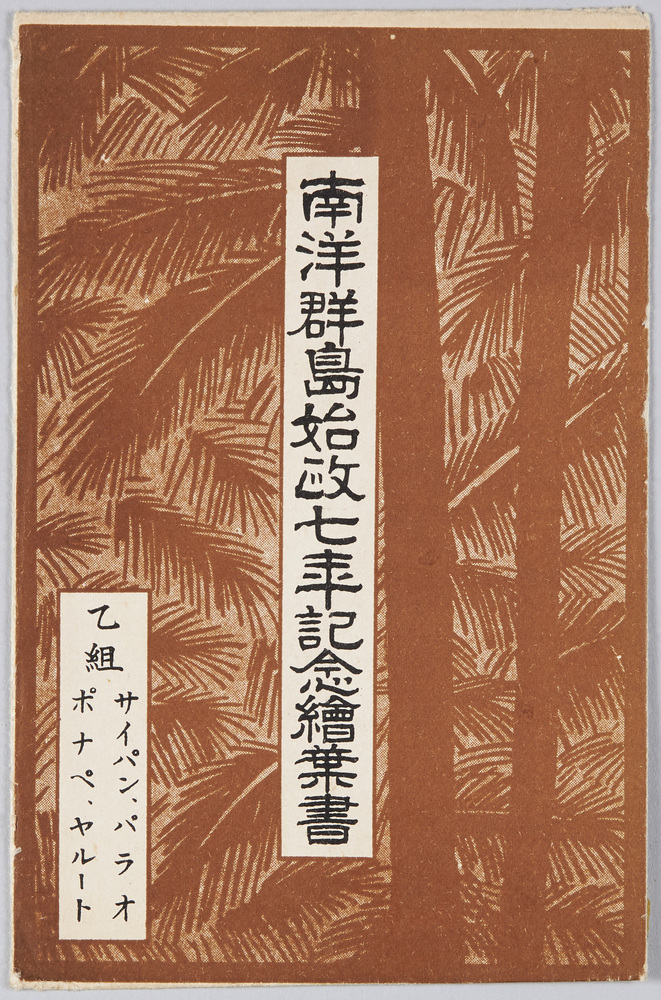 南洋群島始政七年記念繪葉書
乙組
サイパン、パラオ
ポナペ、ヤルート